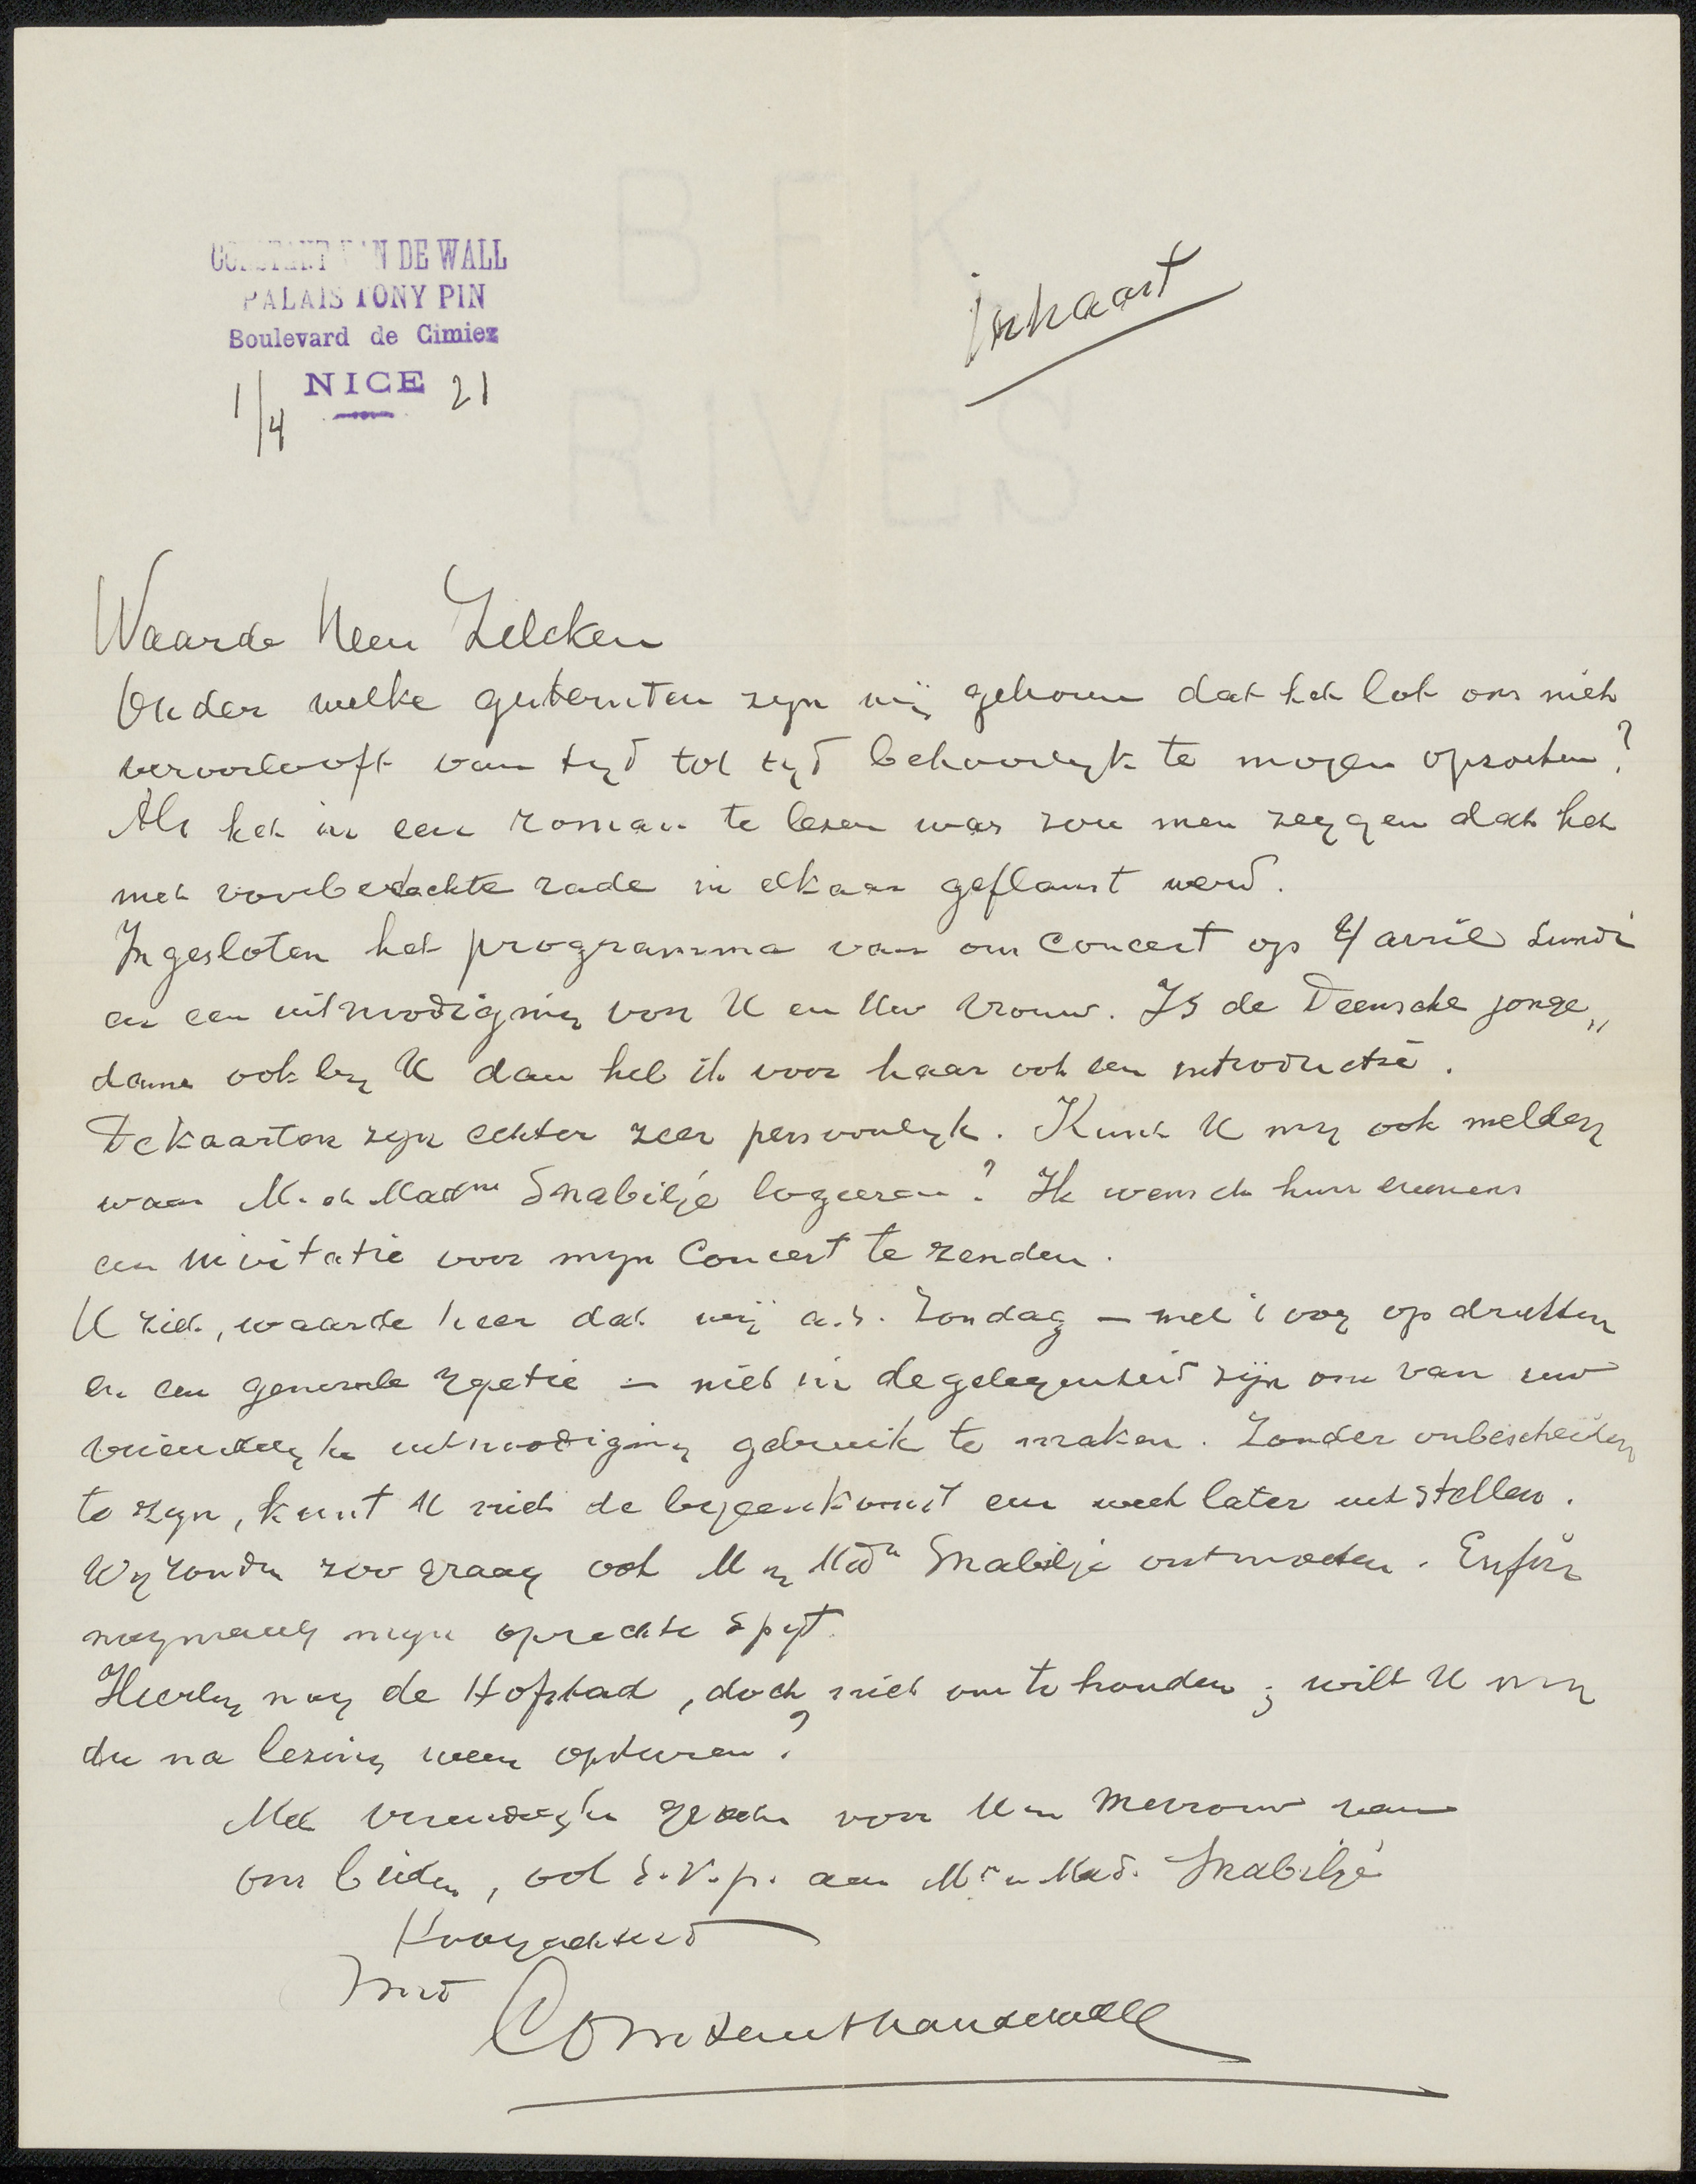 CONSTANT VAN DE WALL
PALAIS TONY PIN
Boulevard de Cimiez
NICE
1/4 21
inkaart
Waarde Heer Zilcken
Onder welke gesternten zyn wij geboren dat het lot ons niet
veroorlooft van tyd tot tyd behoorlyk te mogen opzoeken?
Als het in een roman te lezen was zou men zeggen dat het
met voorbedachte rade in elkaar geflanst werd.
Ingesloten het programma van ons Concert op 4/ avril Lundi
en een uitnoodiging voor U en Uw Vrouw. Is de Deensche jonge„
dame ook by U dan heb ik voor haar ook een introductie.
De kaarten zyn echter zeer persoonlyk. Kunt U my ook melden
waar M. et Madme Snabilje logeeren? Ik wensch hun eveneens
een invitatie voor myn Concert te zenden.
U ziet, waarde heer dat wij a.s. Zondag — met 't oog op drukten
en een generale repetie — niet in de gelegenheid zijn om van uw
vriendelyke uitnoodiging gebruik te maken. Zonder onbescheiden
te zyn, kunt U niet de byeenkomst een week later uitstellen.
Wy zouden zoo graag ook M en Mde Snabilje ontmoeten. Enfin
nogmaals myn oprechte spyt.
Hierby nog de Hofstad, doch niet om te houden; wilt U my
die na lezing weer opsturen?
Met vriendelyke groeten voor U en Mevrouw van
ons beiden, ook s.v.p. aan Mr en Mad. Snabiljé
Hoogachtend
Constant van de Wall